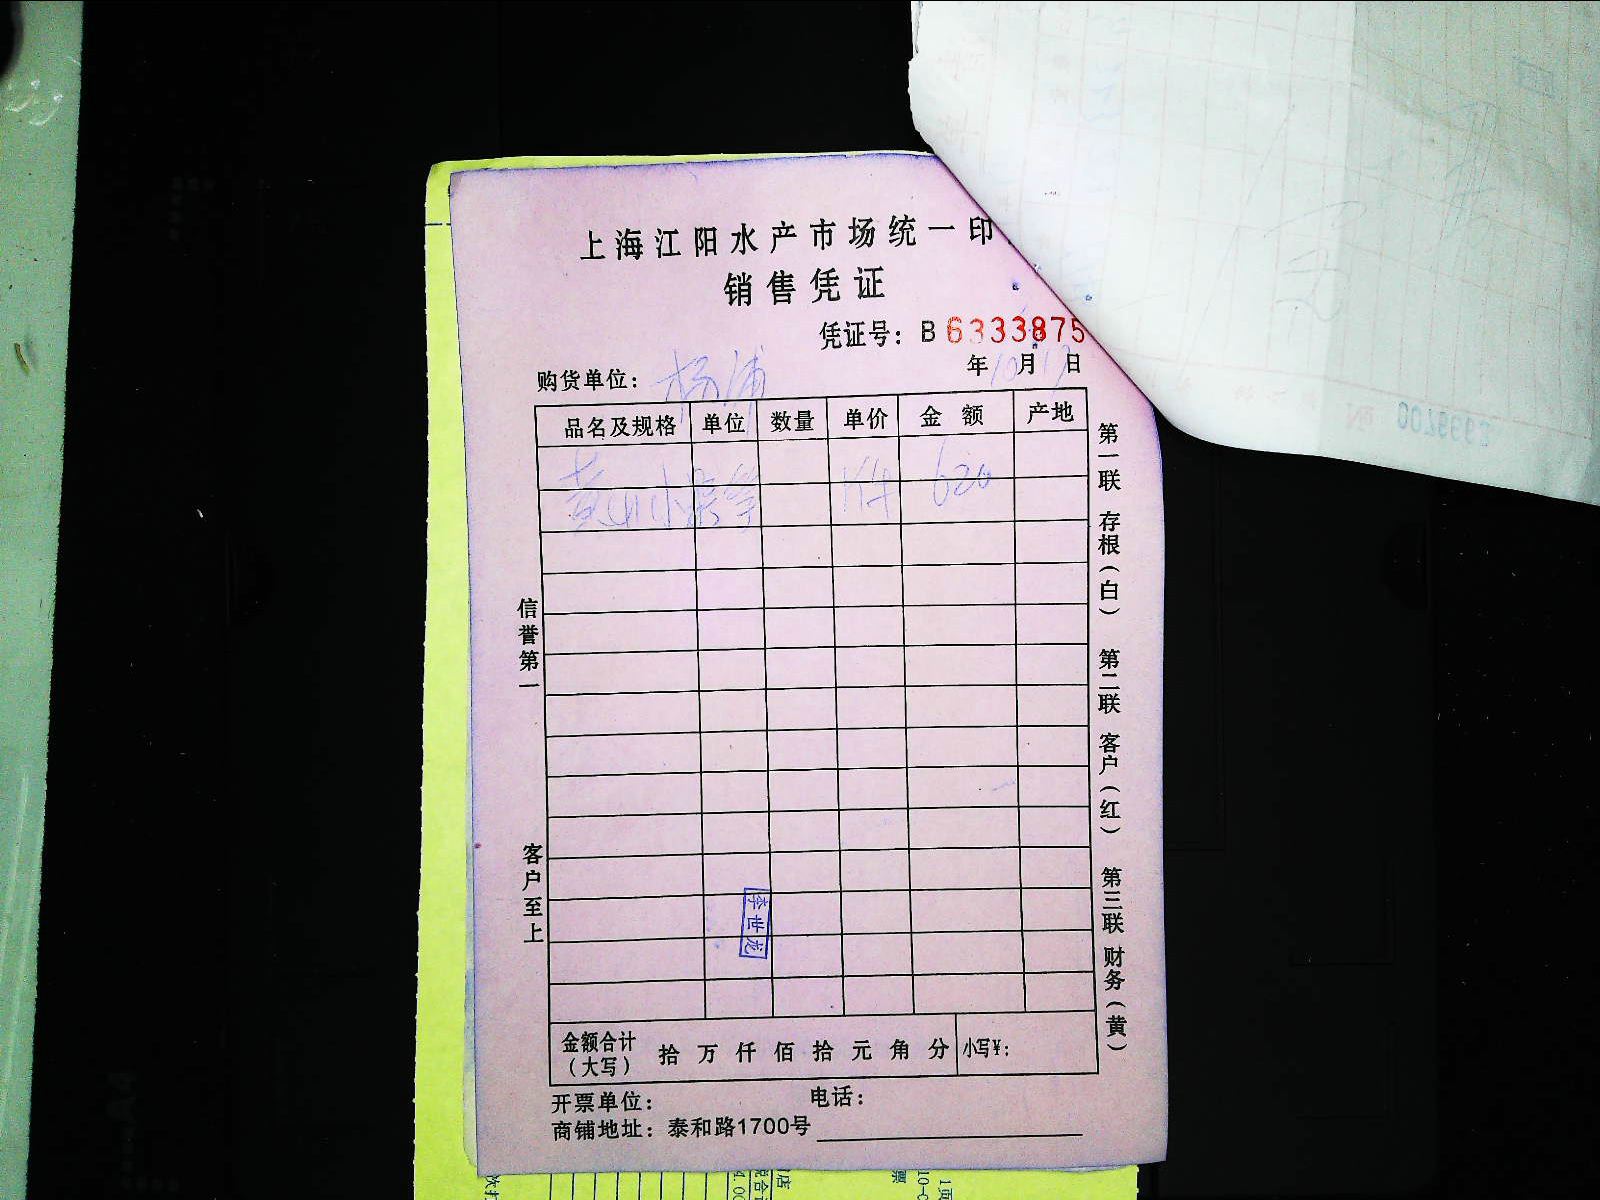 上海江阳水产市场统一印
销售凭证
凭证号：B 6333875
年10月17日
购货单位：杨浦
品名及规格 单位 数量 单价 金额 产地
黄 小 1件 620
信誉第一
客户至上
第一联 存根（白） 第二联 客户（红） 第三联 财务（黄）
李世龙
金额合计（大写） 拾 万 仟 佰 拾 元 角 分 小写¥：
开票单位： 电话：
商铺地址：泰和路1700号